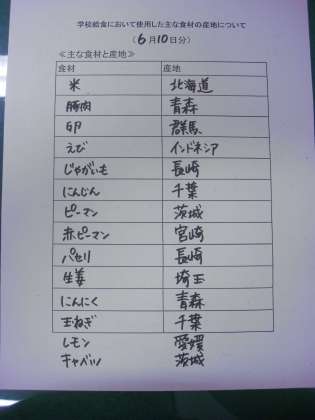 学校給食において使用した主な食材の産地について
（6月10日分）
≪主な食材と産地≫
食材 産地
米 北海道
豚肉 青森
卵 群馬
えび インドネシア
じゃがいも 長崎
にんじん 千葉
ピーマン 茨城
赤ピーマン 宮崎
パセリ 長崎
生姜 埼玉
にんにく 青森
玉ねぎ 千葉
レモン 愛媛
キャベツ 茨城